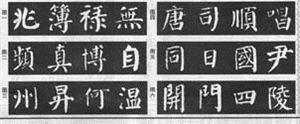 图一
兆簿禄無
图二
頻真博自
图三
州昇何温
图四
唐司順唱
图五
同日國尹
图六
開門四陵